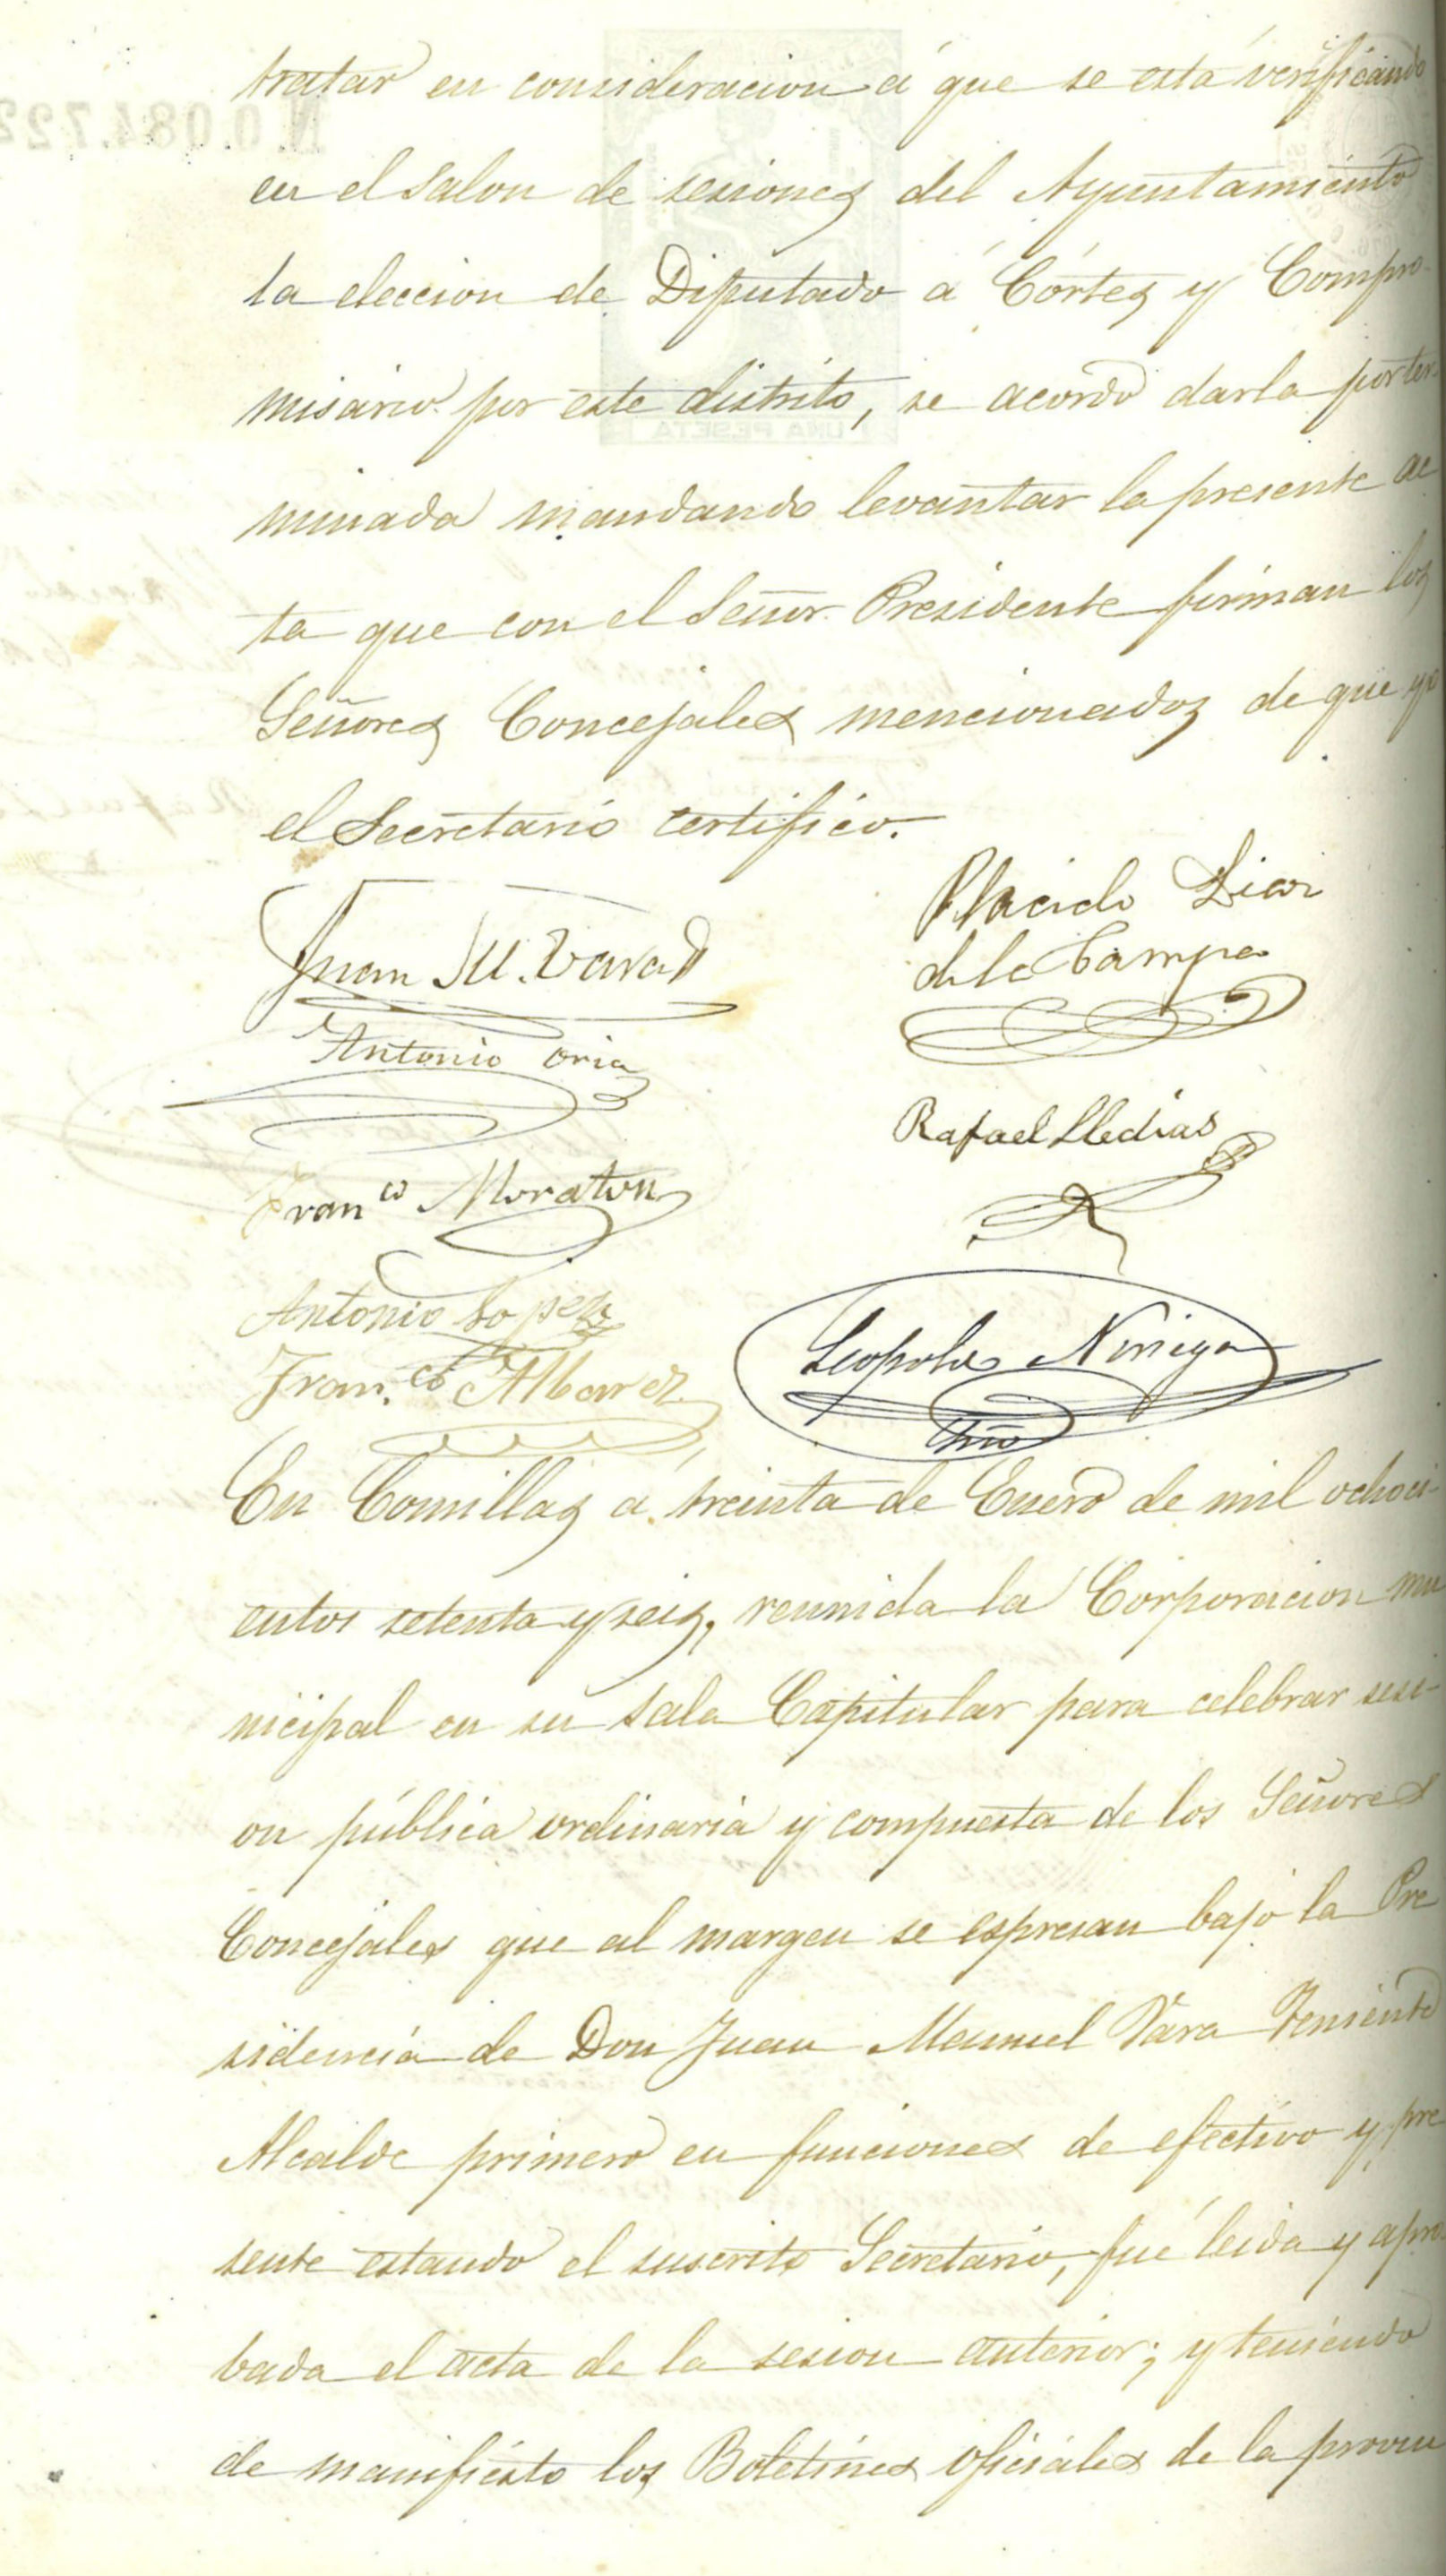 tratar en consideracion á que se está verificando
en el salon de sesiones del Ayuntamiento
la eleccion de Diputado á Córtes y Compro-
misario por este distrito, se acordó darla por ter-
minada mandando levantar la presente ac
ta que con el Señor Presidente firman los
Señores Concejales mencionados de que yo
el Secretario certifico.
Juan M. Vara
Placido Diaz
de la Campa
Antonio Oria
Rafael Lledias
Fran.co Moraton
Antonio Lopez
Leopoldo Noriega
Fran.co Albarez
Srio
En Comillas á treinta de Enero de mil ochoci-
entos setenta y seis, reunida la Corporacion mu
nicipal en su sala Capitular para celebrar sesi-
on pública ordinaria y compuesta de los Señores
Concejales que al margen se espresan bajo la Pre
sidencia de Don Juan Manuel Vara Teniente
Alcalde primero en funciones de efectivo y pre
sente estando el suscrito Secretario, fué leida y apro-
bada el acta de la sesion anterior; y teniendo
de manifiesto los Boletines oficiales de la provin
N.0.084.722
UNA PESETA